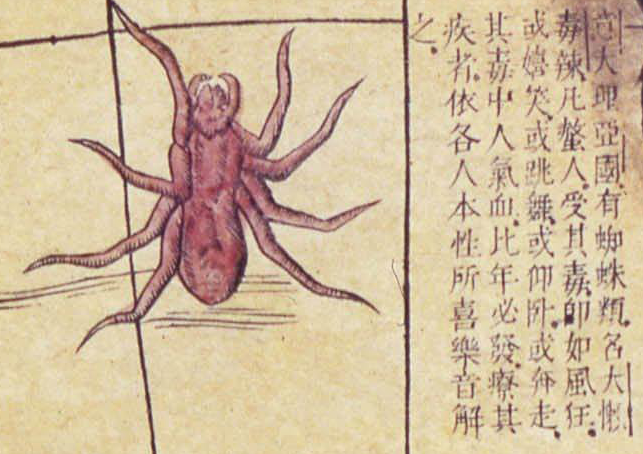 意大理亞國有蜘蛛類名大懶
毒辣凡螫人受其毒即如風狂
或嬉笑或跳舞或仰卧或奔走
其毒中人氣血比年必發療其
疾者依各人本性所喜樂音解
之